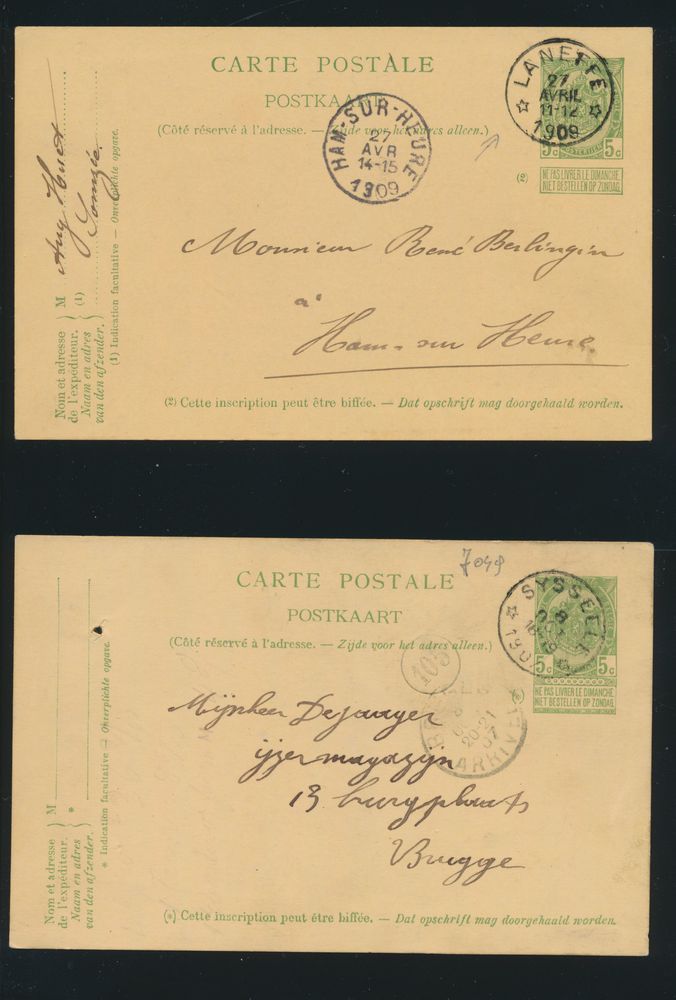 CARTE POSTALE
POSTKAART
(Côté réservé à l'adresse. — Zijde voor het adres alleen.)
HAM-SUR-HEURE
27
AVR
14-15
1909
LANEFFE
27
AVRIL
11-12
1909
5c 5c
(2)
NE PAS LIVRER LE DIMANCHE.
NIET BESTELLEN OP ZONDAG.
Monsieur René Berlingin
à
Ham-sur Heure.
(2) Cette inscription peut être biffée. — Dat opschrift mag doorgehaald worden.
Nom et adresse
de l'expéditeur.
Naam en adres
van den afzender.
M Aug Huet
(1) Somzée
(1) Indication facultative — Onverplichte opgave.
7049
CARTE POSTALE
POSTKAART
(Côté réservé à l'adresse. — Zijde voor het adres alleen.)
SYSSEELE
5c 5c
NE PAS LIVRER LE DIMANCHE.
NIET BESTELLEN OP ZONDAG.
20-21
07
ARRIVEE
Mijnheer Dejaager
ijzermagazijn
13 burgplaats
Brugge
(*) Cette inscription peut être biffée. — Dat opschrift mag doorgehaald worden.
Nom et adresse
de l'expéditeur.
Naam en adres
van den afzender.
M
*
* Indication facultative — Onverplichte opgave.